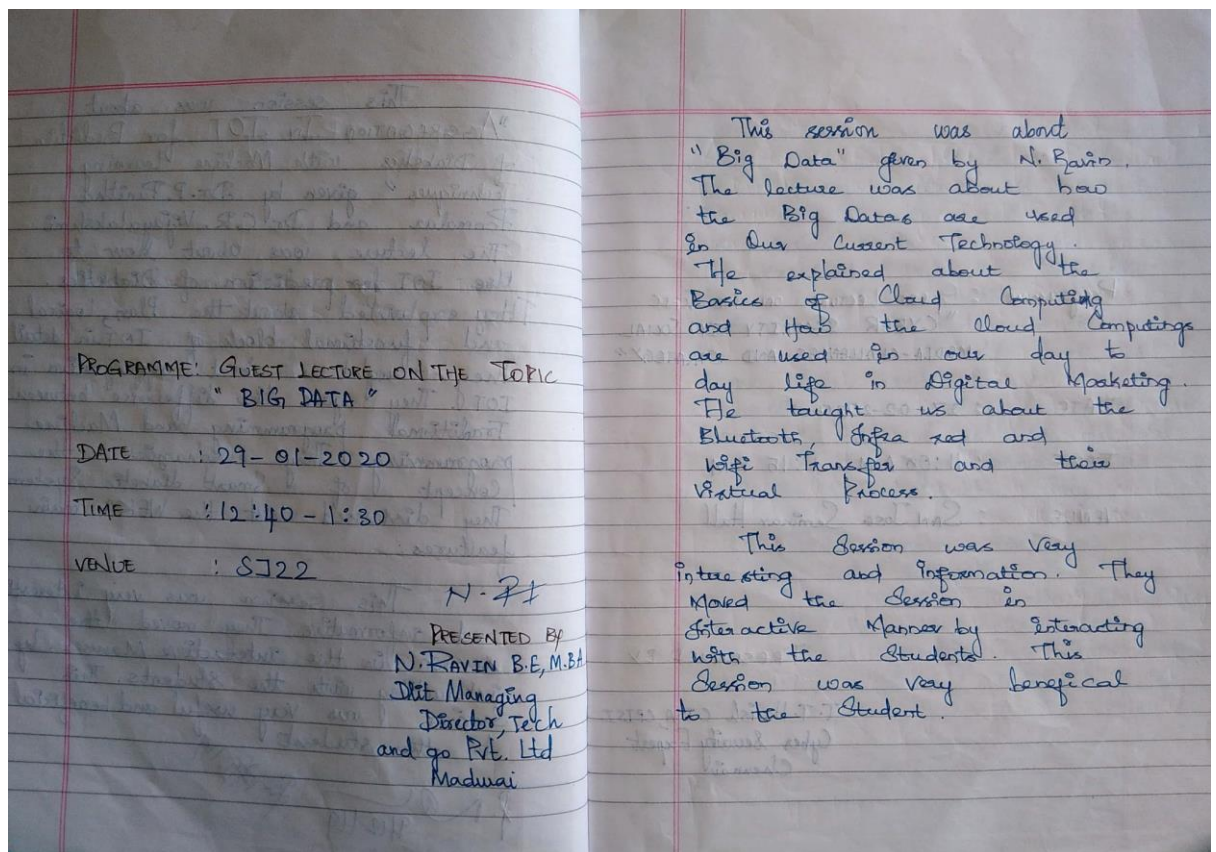 PROGRAMME: GUEST LECTURE ON THE TOPIC
" BIG DATA "
DATE : 29-01-2020
TIME : 12:40 - 1:30
VENUE : SJ22
PRESENTED BY
N. RAVIN B.E, M.BA
Managing
Director, Tech
and go Pvt. Ltd
Madurai
This session was about
" Big Data" given by N. Ravin.
The lecture was about how
the Big Datas are used
in Our Current Technology.
He explained about the
Basics of Cloud Computing
and How the Cloud Computings
are used in our day to
day life in Digital Marketing.
He taught us about the
Bluetooth, Infra red and
wifi Transfer and their
Virtual Process.
This Session was Very
interesting and Information. They
Moved the Session in
Interactive Manner by interacting
with the Students. This
Session was very benefical
to the Student.